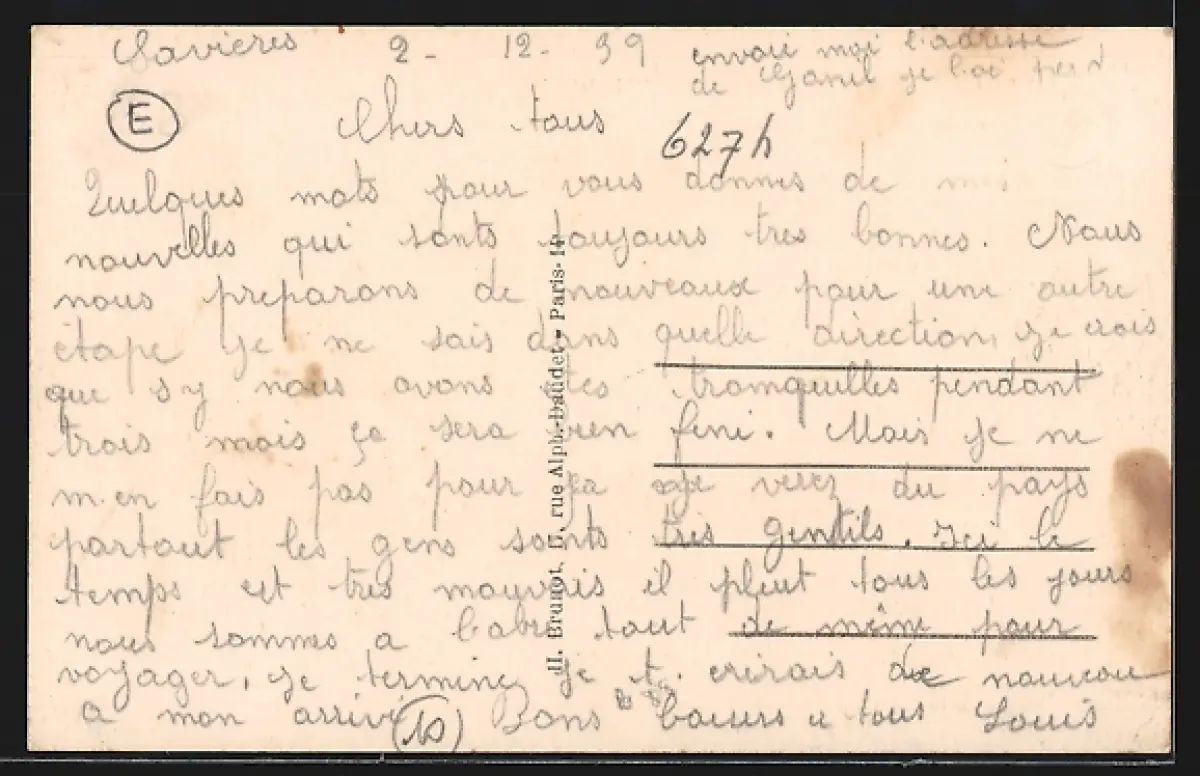 Savières 2 - 12 - 39 envoie moi l'adresse
de je l'ai
E
Chers tous
627h
Quelques mots pour vous donnes de mes
nouvelles qui sonts toujours tres bonnes. Nous
nous preparons de nouveaux pour une autre
étape je ne sais dans quelle direction, je crois
que s'y nous avons etes tranquilles pendant
trois mois ça sera bien fini. Mais je ne
m'en fais pas pour ça je du pays
partout les gens sonts très gentils. Ici le
temps est très mauvais il pleut tous les jours
nous sommes a l'abri tout de même pour
voyager, je termine je t. crirais de nouveau
a mon arrivé Bons a tous Louis
10
H. Brunot, rue Alph.-Daudet, Paris-14